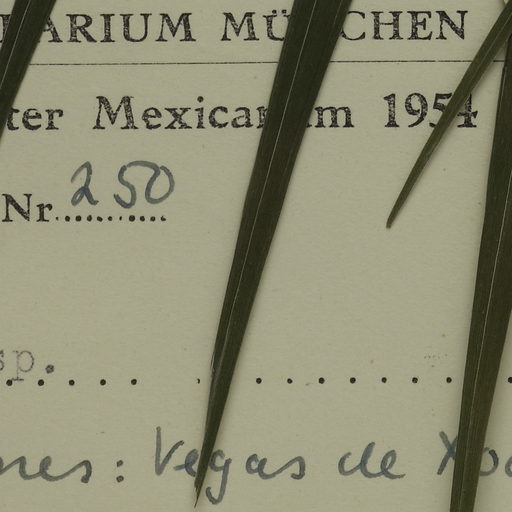 ARIUM MÜNCHEN
ter Mexicanum 1954
Nr 250
sp.
nes: Vegas de Xo